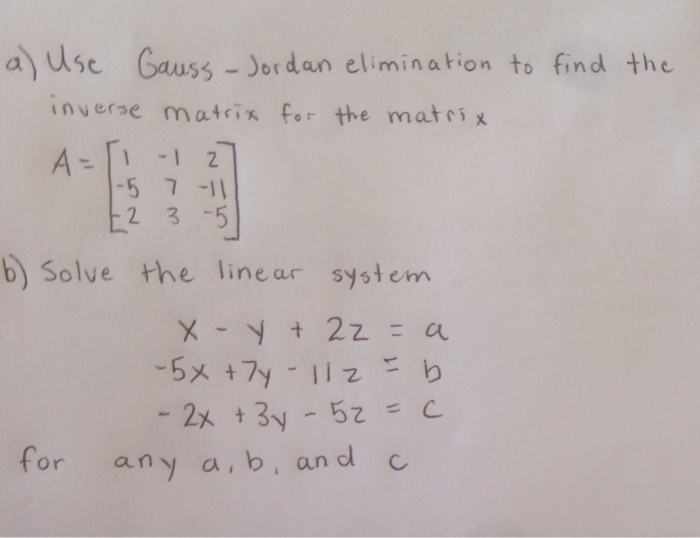 a) Use Gauss - Jordan elimination to find the
inverse matrix for the matrix
A = [1 -1 2
-5 7 -11
-2 3 -5]
b) Solve the linear system
x - y + 2z = a
-5x + 7y - 11z = b
- 2x + 3y - 5z = c
for any a, b, and c